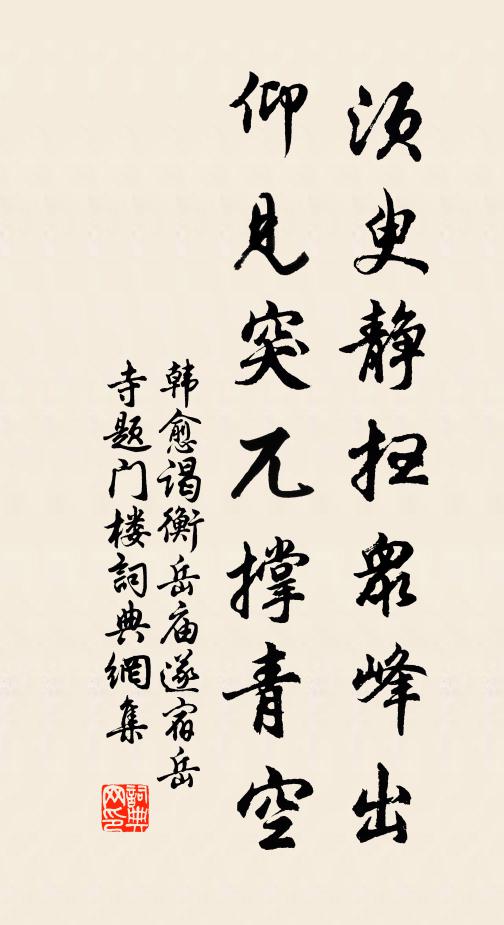 须臾静扫众峰出
仰见突兀撑青空
韩愈谒衡岳庙遂宿岳
寺题门楼詞典網集
詞典
网